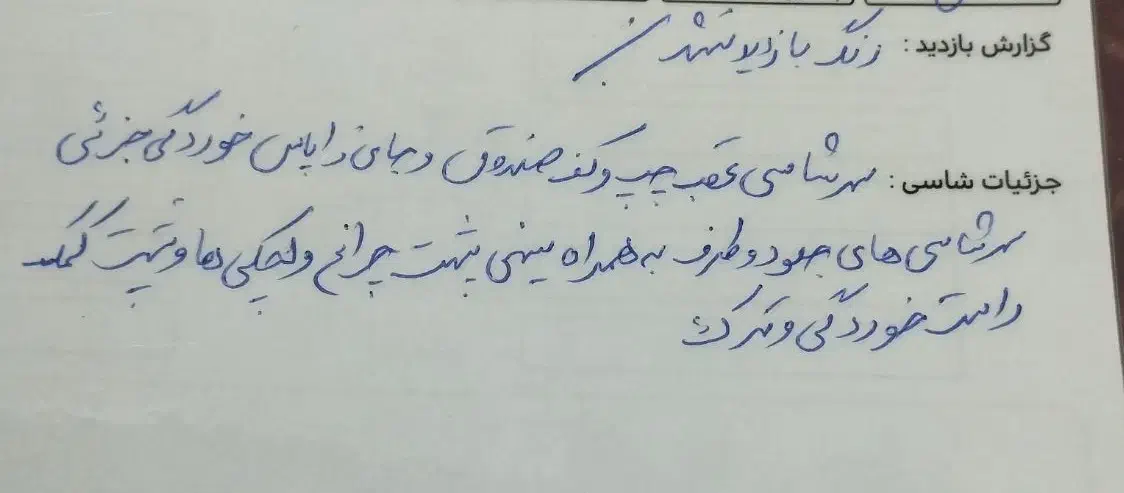 گزارش بازدید : رنگ بازدید نشد
جزئیات شاسی : سرشاسی عقب چپ و کف صندوق و جای زاپاس خوردگی جزئی
سرشاسی های جلو دو طرف به همراه سینی پشت چراغ و لچکی ها و پشت گلگیر
راست خوردگی و ترک